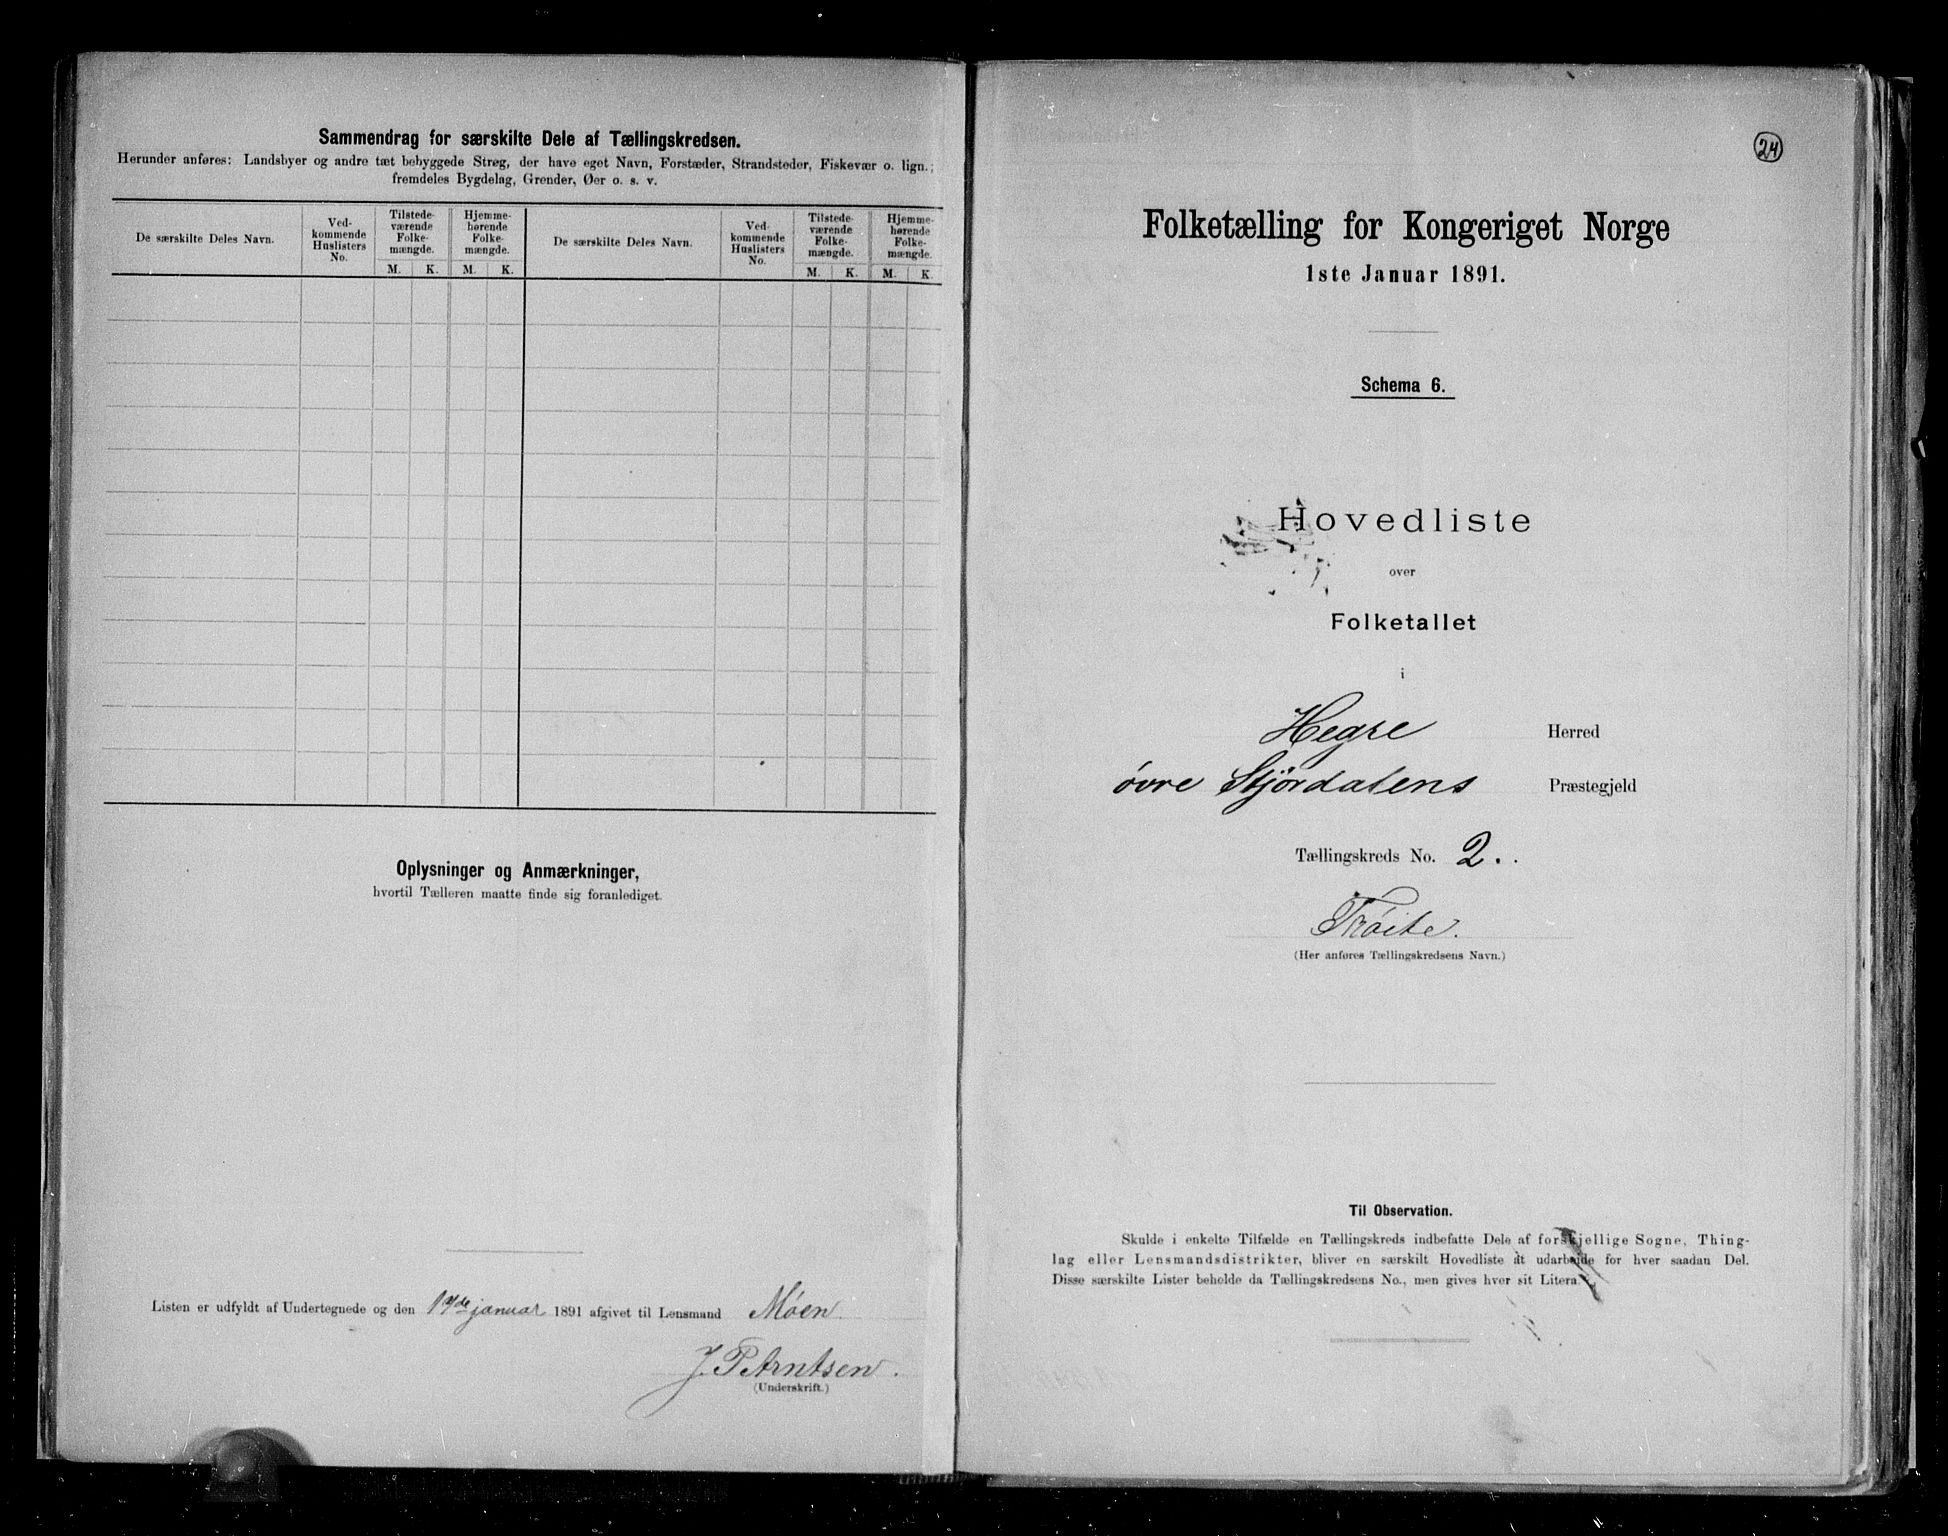 Sammendrag for særskilte Dele af Tællingskredsen.
Herunder anføres: Landsbyer og andre tæt bebyggede Strøg, der have eget Navn, Forstæder, Strandsteder, Fiskevær o. lign.;
fremdeles Bygdelag, Grender, Øer o. s. v.
De særskilte Deles Navn.
Ved-
kommende
Huslisters
No.
Tilstede-
værende
Folke-
mængde.
Hjemme-
hørende
Folke-
mængde.
M. K. M. K.
De særskilte Deles Navn.
Ved-
kommende
Huslisters
No.
Tilstede-
værende
Folke-
mængde.
Hjemme-
hørende
Folke-
mængde.
M. K. M. K.
Oplysninger og Anmærkninger,
hvortil Tælleren maatte finde sig foranlediget.
Listen er udfyldt af Undertegnede og den januar 1891 afgivet til Lensmand Möen
J. P. Arntsen.
(Underskrift.)
24
Folketælling for Kongeriget Norge
1ste Januar 1891.
Schema 6.
Hovedliste
over
Folketallet
i
Hegre Herred
övre Stjördalens Præstegjeld
Tællingskreds No. 2.
Tröite.
(Her anføres Tællingskredsens Navn.)
Til Observation.
Skulde i enkelte Tilfælde en Tællingskreds indbefatte Dele af forskjellige Sogne, Thing-
lag eller Lensmandsdistrikter, bliver en særskilt Hovedliste at udarbeide for hver saadan Del.
Disse særskilte Lister beholde da Tællingskredsens No., men gives hver sit Litera.